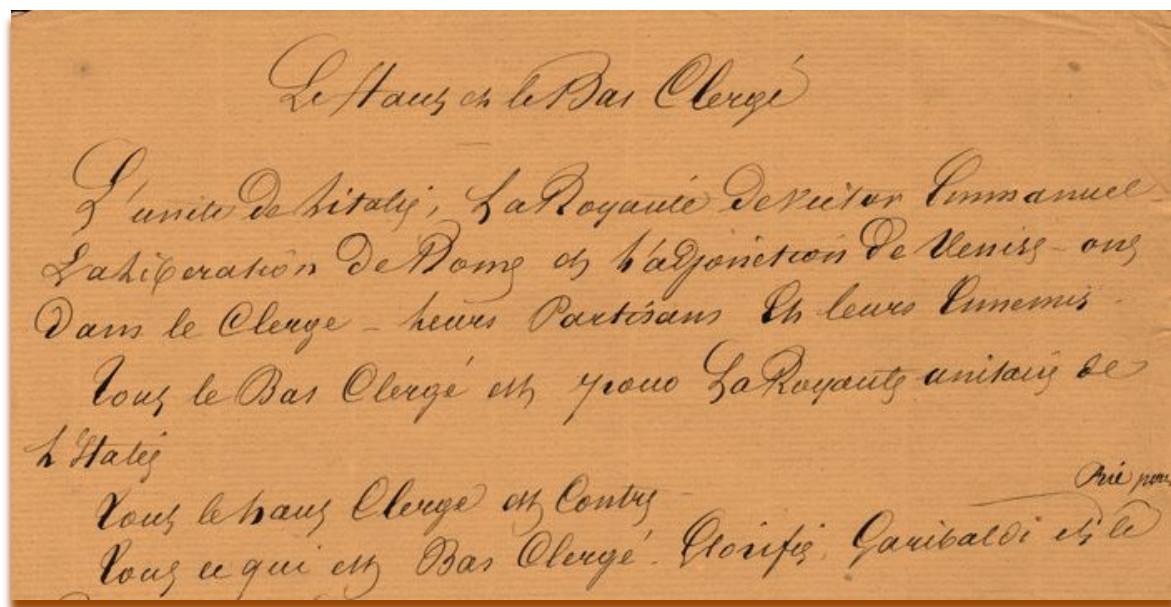 Le Haut et le Bas Clergé
L'unité de L'italie, La Royauté de Victor Emmanuel
La Liberation de Rome et L'adjonction de Venise - ont
Dans le Clergé - Leurs Partisans Et leurs Ennemis -
Tout le Bas Clergé est pour La Royauté unitaire de
L'Italie
Tout le haut Clergé est Contre
Prie pour
Tout ce qui est Bas Clergé. Glorifie Garibaldi et le